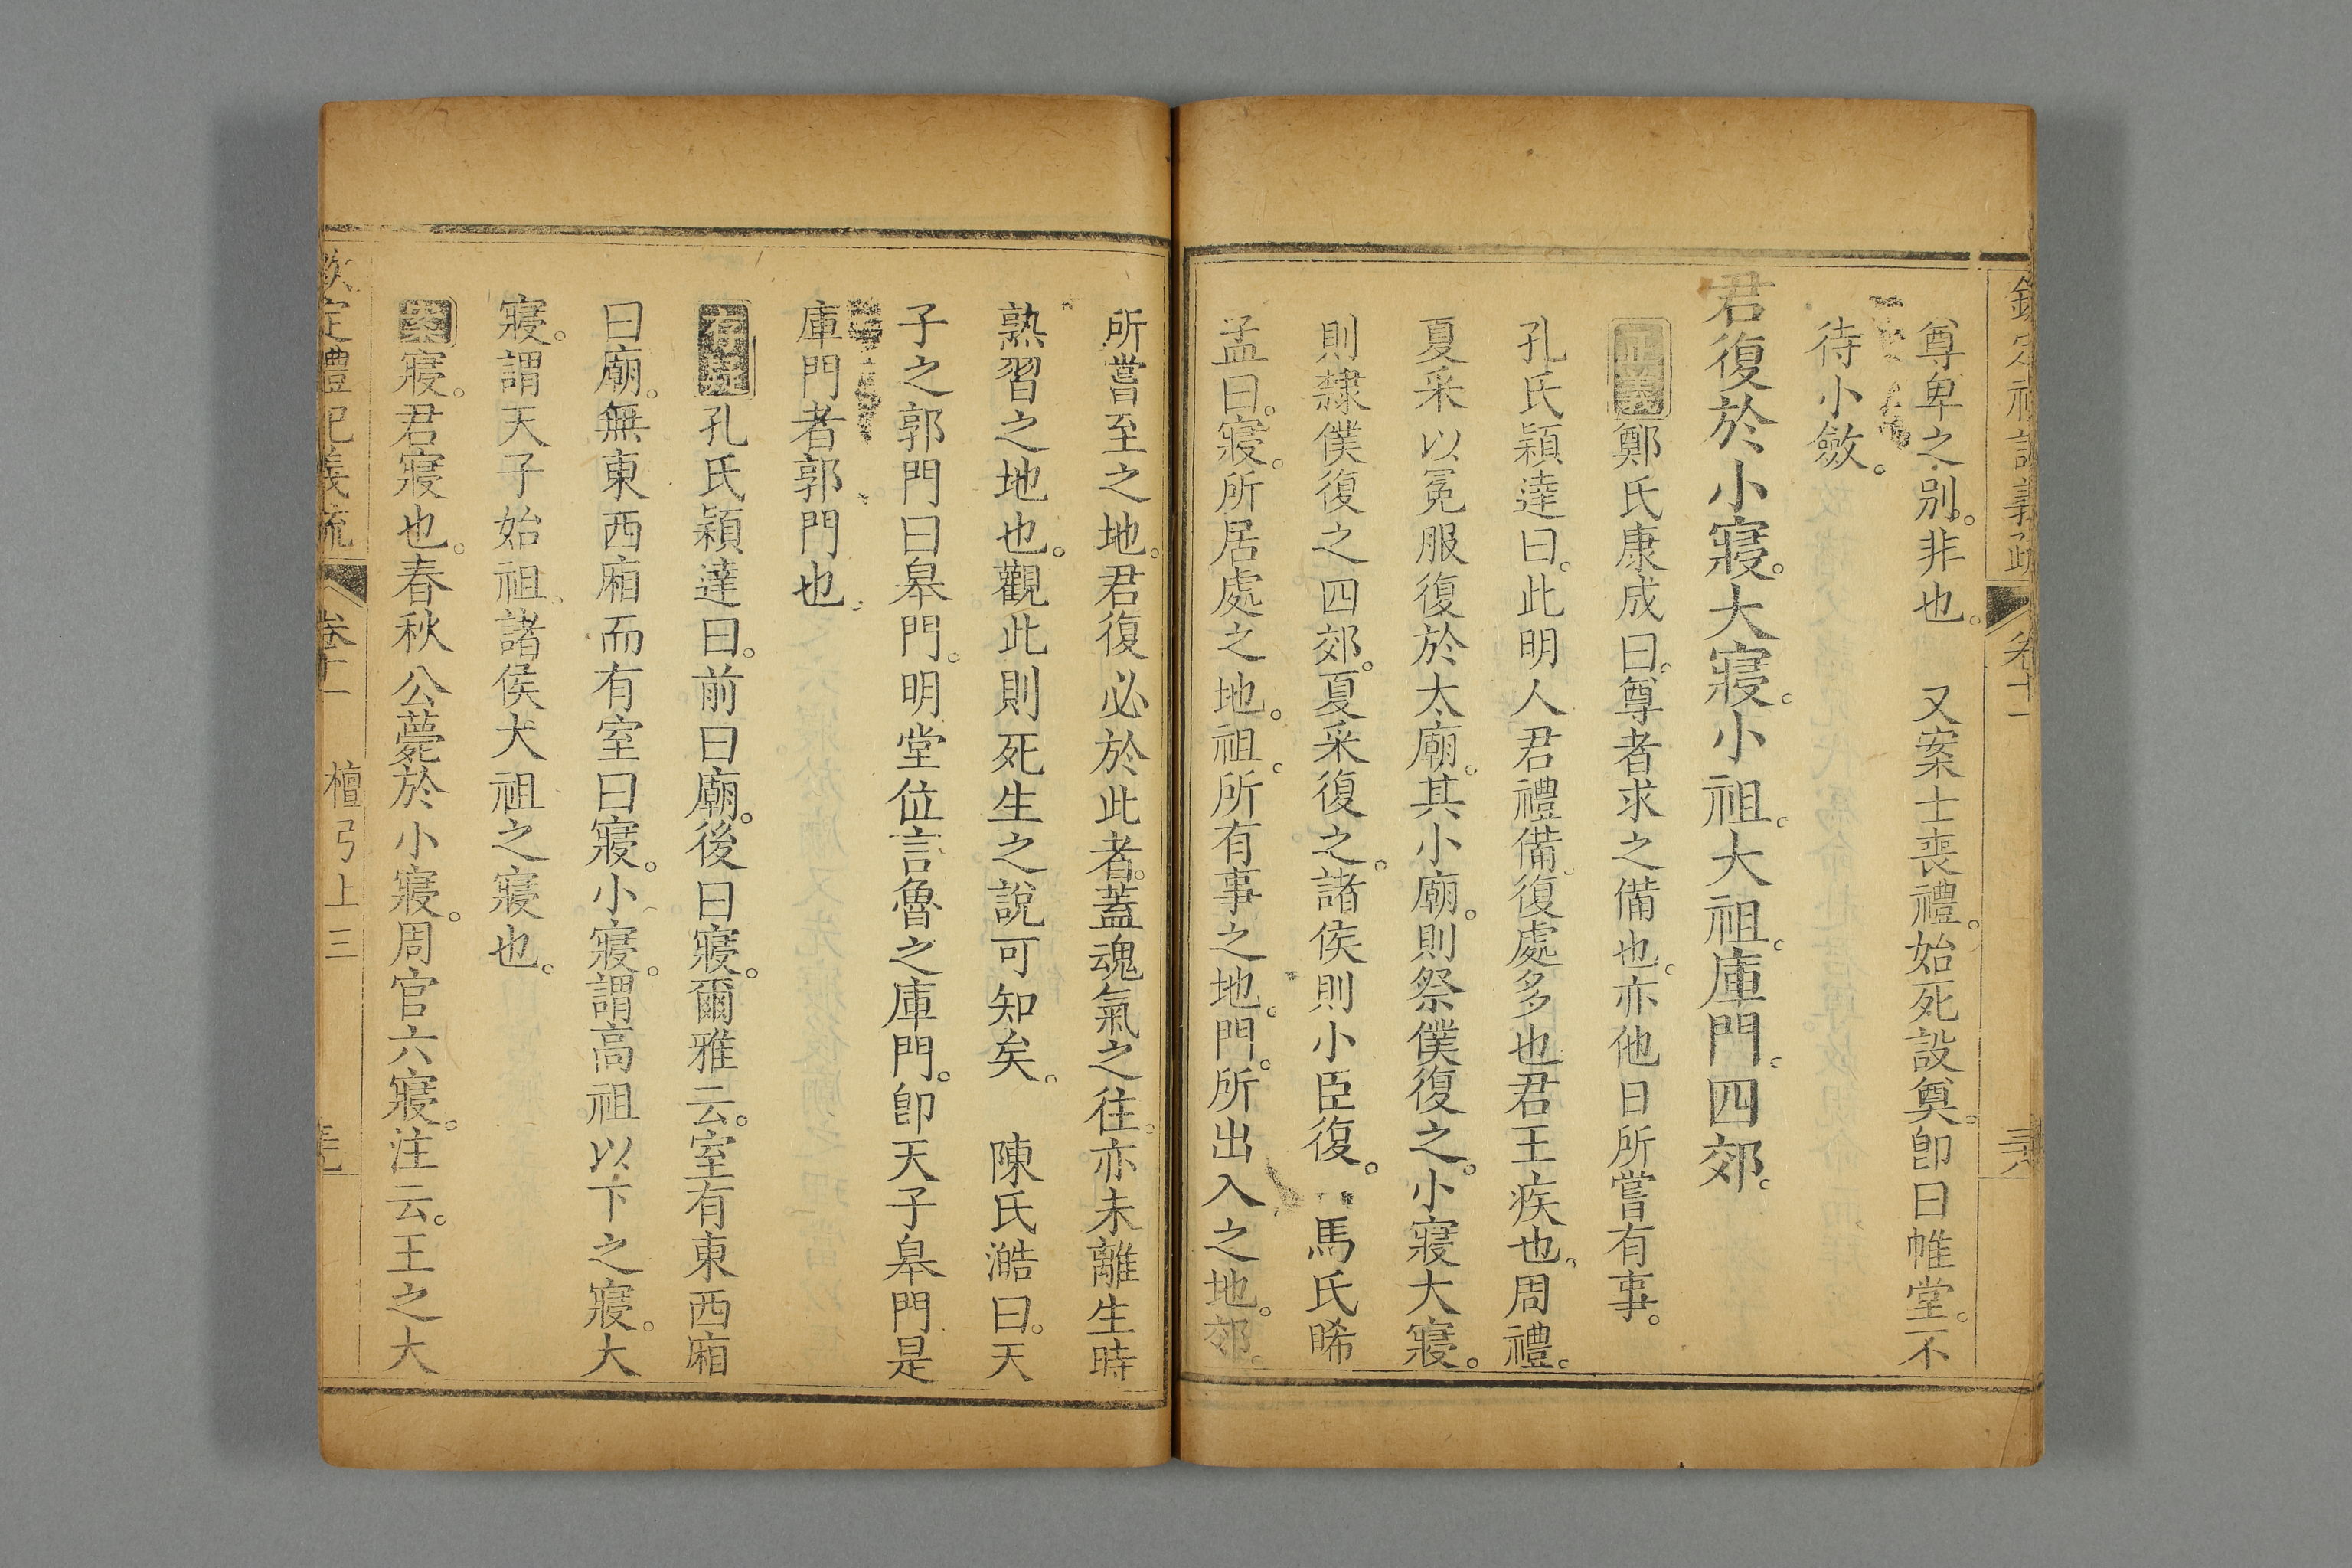 尊卑之別。非也。　又案士喪禮。始死設奠。卽曰帷堂。不
待小斂。
君復於小寢。大寢。小祖。大祖。庫門。四郊。
正義鄭氏康成曰。尊者求之備也。亦他日所嘗有事。
孔氏穎達曰。此明人君禮備。復處多也君王疾也。周禮。
夏采以冕服復於太廟。其小廟。則祭僕復之。小寢大寢。
則隸僕復之四郊。夏采復之。諸侯則小臣復。　馬氏睎
孟曰。寢。所居處之地。祖。所有事之地。門。所出入之地。郊。
所嘗至之地。君復必於此者。蓋魂氣之往。亦未離生時
熟習之地也。觀此則死生之說可知矣。　陳氏澔曰。天
子之郭門曰皋門。明堂位言魯之庫門。卽天子皋門是
庫門者郭門也。
存疑孔氏穎達曰。前曰廟。後曰寢。爾雅云。室有東西廂
曰廟。無東西廂而有室曰寢。小寢。謂高祖以下之寢。大
寢。謂天子始祖。諸侯大祖之寢也。
案寢。君寢也。春秋公薨於小寢。周官六寢。注云。王之大
欽定禮記義疏　卷十一　檀弓上三